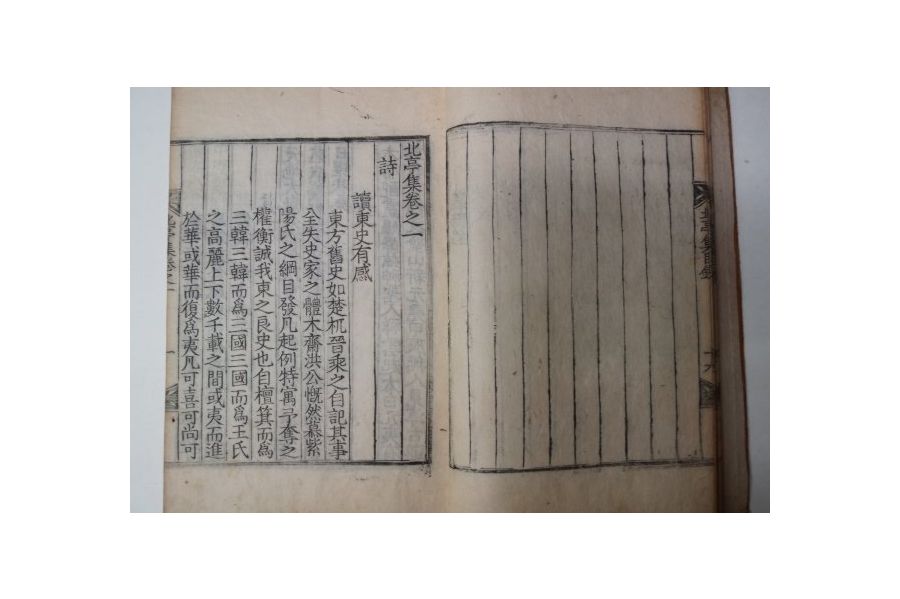 北亭集卷之一
詩
讀東史有感
東方舊史如楚杌晉乘之自記其事
全失史家之體木齋洪公慨然慕紫
陽氏之綱目發凡起例特寓予奪之
權衡誠我東之良史也自檀箕而爲
三韓三韓而爲三國三國而爲王氏
之高麗上下數千載之間或夷而進
於華或華而復爲夷凡可喜可尚可
北亭集卷之一
北亭集目錄